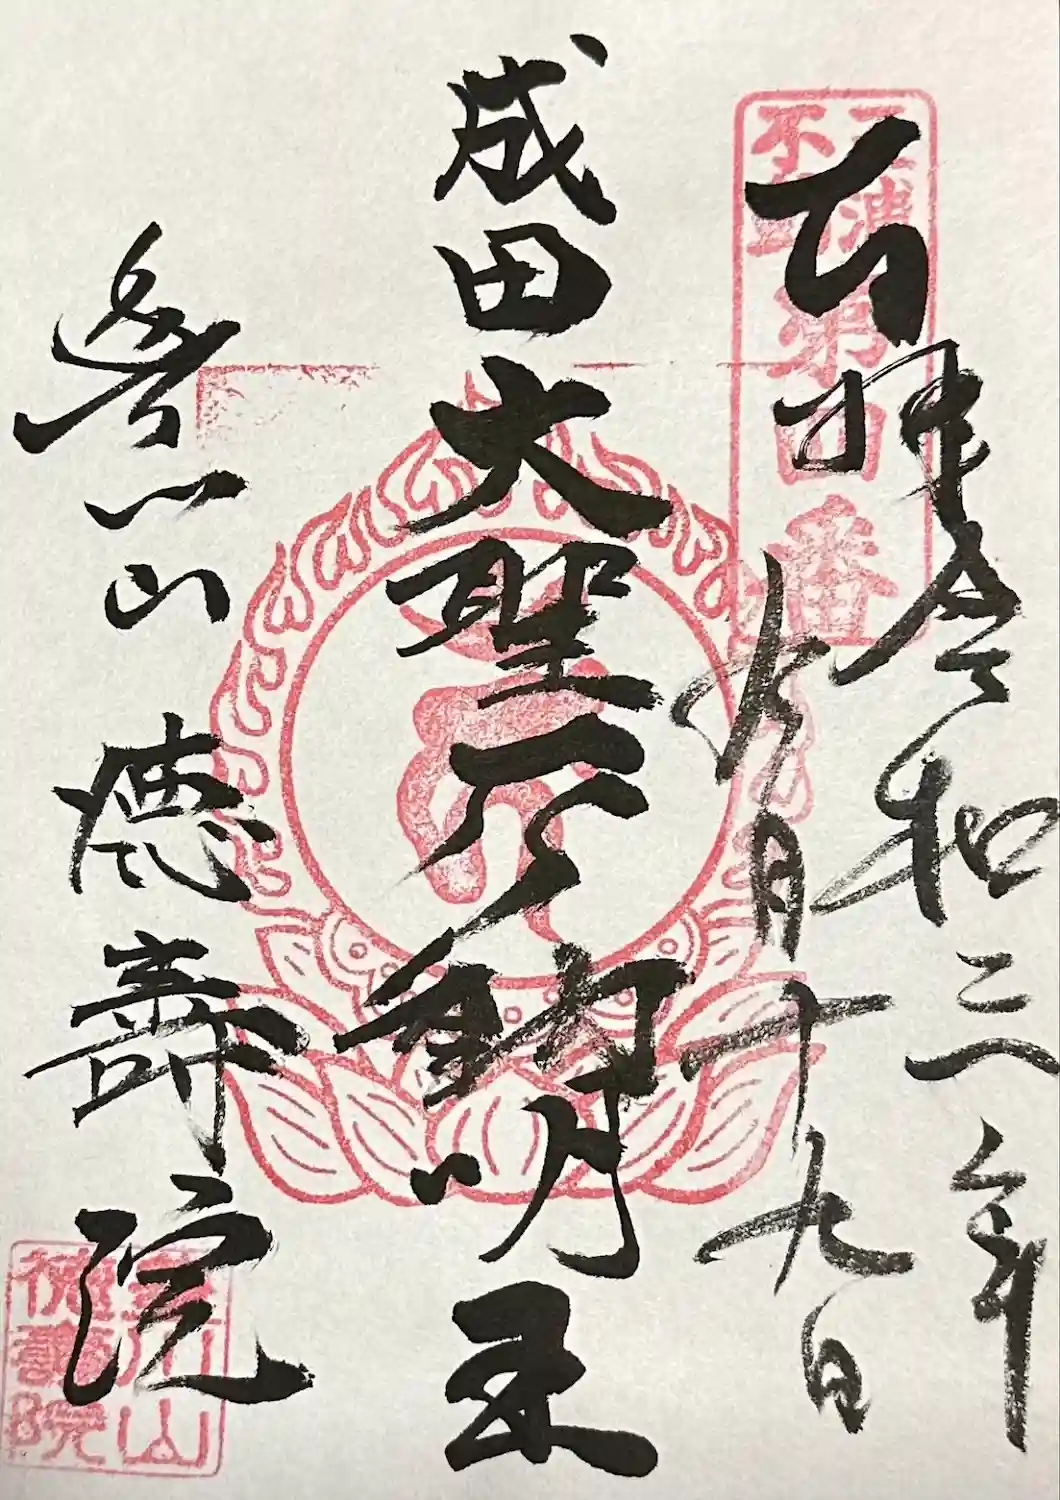 奉拝 令和三年
月十九日
三浦
不動
第四番
成田大聖不動明王
山 徳壽院
山
徳壽院